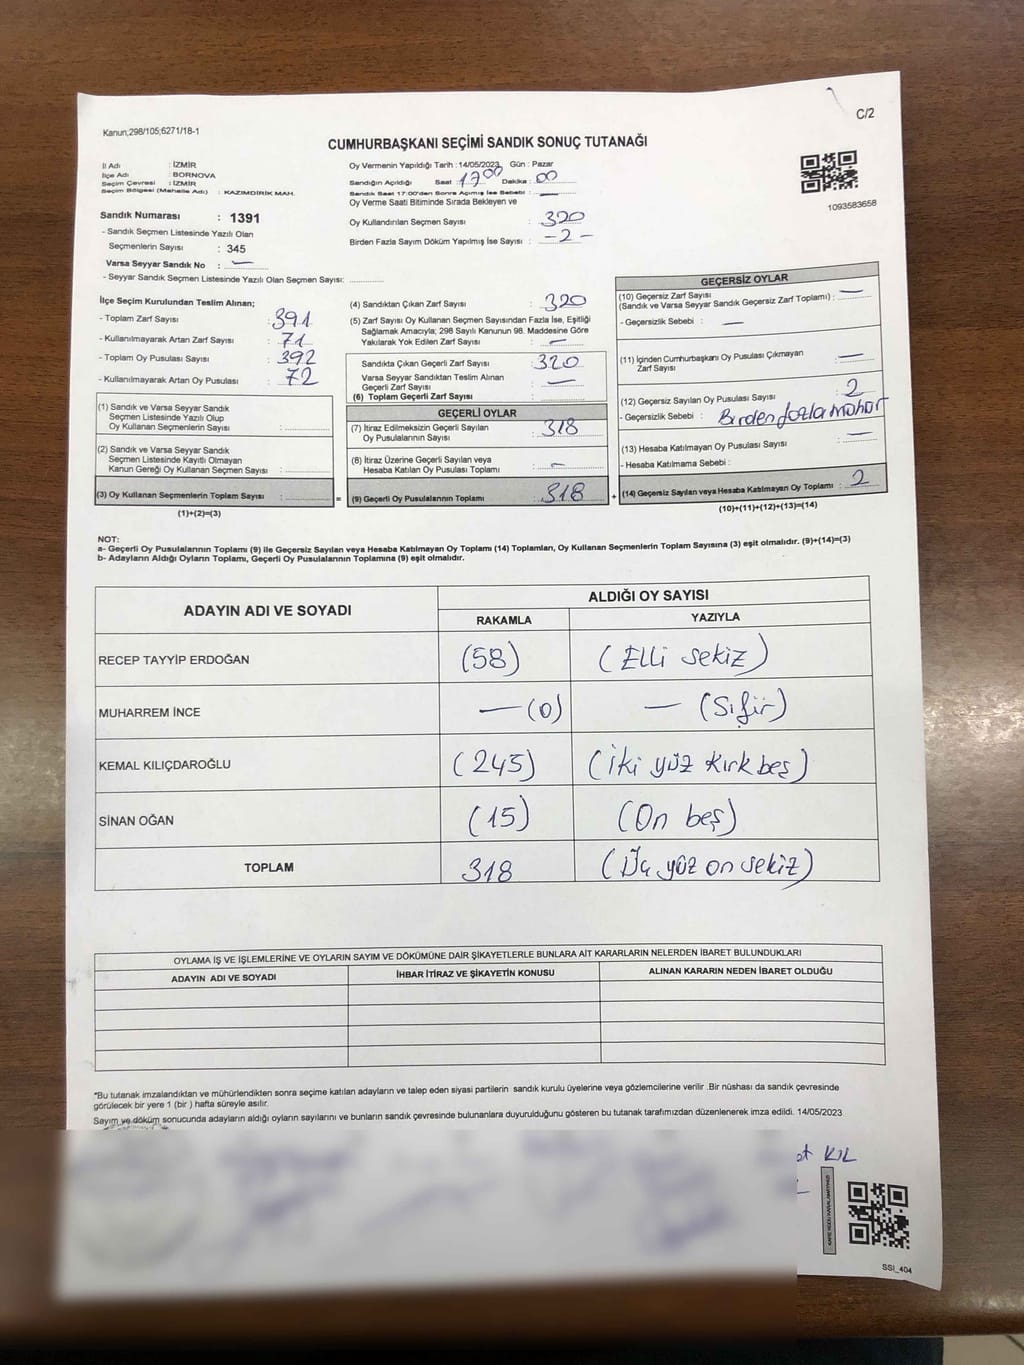 C/2
Kanun;298/105;6271/18-1
CUMHURBAŞKANI SEÇİMİ SANDIK SONUÇ TUTANAĞI
1093583658
İl Adı : İZMİR
İlçe Adı : BORNOVA
Seçim Çevresi : İZMİR
Seçim Bölgesi (Mahalle Adı) : KAZIMDİRİK MAH.
Sandık Numarası : 1391
- Sandık Seçmen Listesinde Yazılı Olan
Seçmenlerin Sayısı : 345
Varsa Seyyar Sandık No : —
- Seyyar Sandık Seçmen Listesinde Yazılı Olan Seçmen Sayısı:
Oy Vermenin Yapıldığı Tarih : 14/05/2023 Gün : Pazar
Sandığın Açıldığı Saat 17 00 Dakika : 00
Sandık Saat 17:00'den Sonra Açılmış İse Sebebi : —
Oy Verme Saati Bitiminde Sırada Bekleyen ve
Oy Kullandırılan Seçmen Sayısı : 320
Birden Fazla Sayım Döküm Yapılmış İse Sayısı : -2-
İlçe Seçim Kurulundan Teslim Alınan;
- Toplam Zarf Sayısı : 391
- Kullanılmayarak Artan Zarf Sayısı : 71
- Toplam Oy Pusulası Sayısı : 392
- Kullanılmayarak Artan Oy Pusulası : 72
(1) Sandık ve Varsa Seyyar Sandık
Seçmen Listesinde Yazılı Olup
Oy Kullanan Seçmen Sayısı :
(2) Sandık ve Varsa Seyyar Sandık
Seçmen Listesinde Kayıtlı Olmayan
Kanun Gereği Oy Kullanan Seçmen Sayısı :
(3) Oy Kullanan Seçmenlerin Toplam Sayısı :
(1)+(2)=(3)
(4) Sandıktan Çıkan Zarf Sayısı : 320
(5) Zarf Sayısı Oy Kullanan Seçmen Sayısından Fazla İse, Eşitliği
Sağlamak Amacıyla; 298 Sayılı Kanunun 98. Maddesine Göre
Yakılarak Yok Edilen Zarf Sayısı : —
Sandıkta Çıkan Geçerli Zarf Sayısı : 320
Varsa Seyyar Sandıktan Teslim Alınan
Geçerli Zarf Sayısı : —
(6) Toplam Geçerli Zarf Sayısı :
GEÇERLİ OYLAR
(7) İtiraz Edilmeksizin Geçerli Sayılan
Oy Pusulalarının Sayısı : 318
(8) İtiraz Üzerine Geçerli Sayılan veya
Hesaba Katılan Oy Pusulası Toplamı : —
= (9) Geçerli Oy Pusulalarının Toplamı : 318 +
GEÇERSİZ OYLAR
(10) Geçersiz Zarf Sayısı
(Sandık ve Varsa Seyyar Sandık Geçersiz Zarf Toplamı) : —
- Geçersizlik Sebebi : —
(11) İçinden Cumhurbaşkanı Oy Pusulası Çıkmayan
Zarf Sayısı : —
(12) Geçersiz Sayılan Oy Pusulası Sayısı : 2
- Geçersizlik Sebebi : Birden fazla mühür
(13) Hesaba Katılmayan Oy Pusulası Sayısı : —
- Hesaba Katılmama Sebebi :
(14) Geçersiz Sayılan veya Hesaba Katılmayan Oy Toplamı : 2
(10)+(11)+(12)+(13)=(14)
NOT:
a- Geçerli Oy Pusulalarının Toplamı (9) ile Geçersiz Sayılan veya Hesaba Katılmayan Oy Toplamı (14) Toplamları, Oy Kullanan Seçmenlerin Toplam Sayısına (3) eşit olmalıdır. (9)+(14)=(3)
b- Adayların Aldığı Oyların Toplamı, Geçerli Oy Pusulalarının Toplamına (9) eşit olmalıdır.
ADAYIN ADI VE SOYADI ALDIĞI OY SAYISI
RAKAMLA YAZIYLA
RECEP TAYYİP ERDOĞAN (58) (Elli sekiz)
MUHARREM İNCE — (0) — (Sıfır)
KEMAL KILIÇDAROĞLU (245) (İki yüz kırk beş)
SİNAN OĞAN (15) (On beş)
TOPLAM 318 (Üç yüz on sekiz)
OYLAMA İŞ VE İŞLEMLERİNE VE OYLARIN SAYIM VE DÖKÜMÜNE DAİR ŞİKAYETLERLE BUNLARA AİT KARARLARIN NELERDEN İBARET BULUNDUKLARI
ADAYIN ADI VE SOYADI İHBAR İTİRAZ VE ŞİKAYETİN KONUSU ALINAN KARARIN NEDEN İBARET OLDUĞU
*Bu tutanak imzalandıktan ve mühürlendikten sonra seçime katılan adayların ve talep eden siyasi partilerin sandık kurulu üyelerine veya gözlemcilerine verilir .Bir nüshası da sandık çevresinde
görülecek bir yere 1 (bir ) hafta süreyle asılır.
Sayım ve döküm sonucunda adayların aldığı oyların sayılarını ve bunların sandık çevresinde bulunanlara duyurulduğunu gösteren bu tutanak tarafımızdan düzenlenerek imza edildi. 14/05/2023
KIL
SSI_404